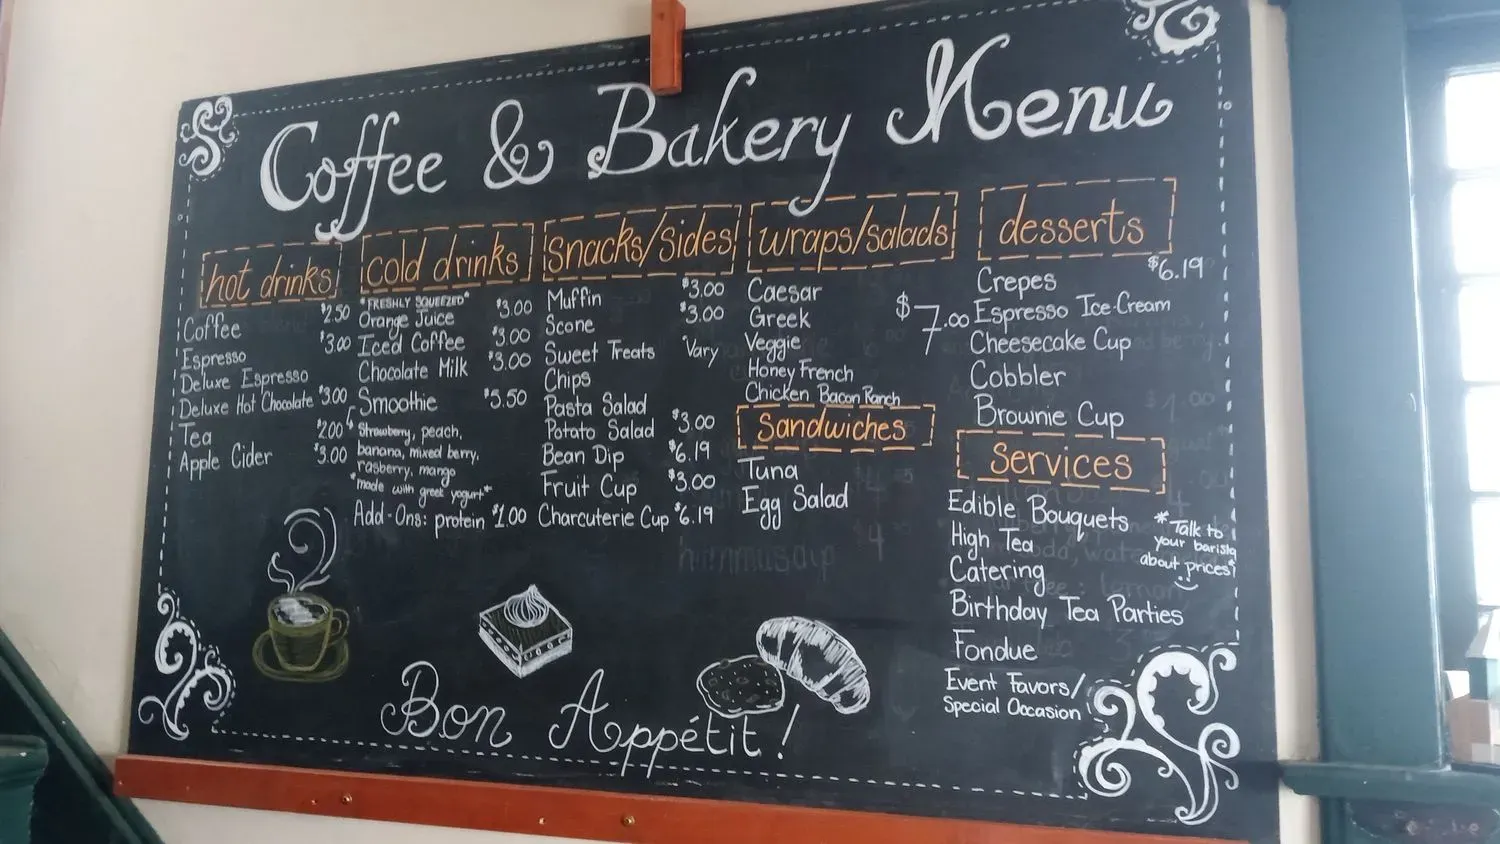 Coffee & Bakery Menu
hot drinks
Coffee $2.50
Espresso $3.00
Deluxe Espresso
Deluxe Hot Chocolate $3.00
Tea $2.00
Apple Cider $3.00
cold drinks
*FRESHLY SQUEEZED*
Orange Juice $3.00
Iced Coffee $3.00
Chocolate Milk $3.00
Smoothie $5.50
Strawberry, peach,
banana, mixed berry,
rasberry, mango
*made with greek yogurt*
Add-Ons: protein $1.00
snacks/sides
Muffin $3.00
Scone $3.00
Sweet Treats Vary
Chips
Pasta Salad
Potato Salad $3.00
Bean Dip $6.19
Fruit Cup $3.00
Charcuterie Cup $6.19
wraps/salads
Caesar
Greek $7.00
Veggie
Honey French
Chicken Bacon Ranch
Sandwiches
Tuna
Egg Salad
desserts
Crepes $6.19
Espresso Ice-Cream
Cheesecake Cup
Cobbler
Brownie Cup
Services
Edible Bouquets
High Tea
Catering
Birthday Tea Parties
Fondue
Event Favors/
Special Occasion
*Talk to
your barista
about prices*
Bon Appétit!